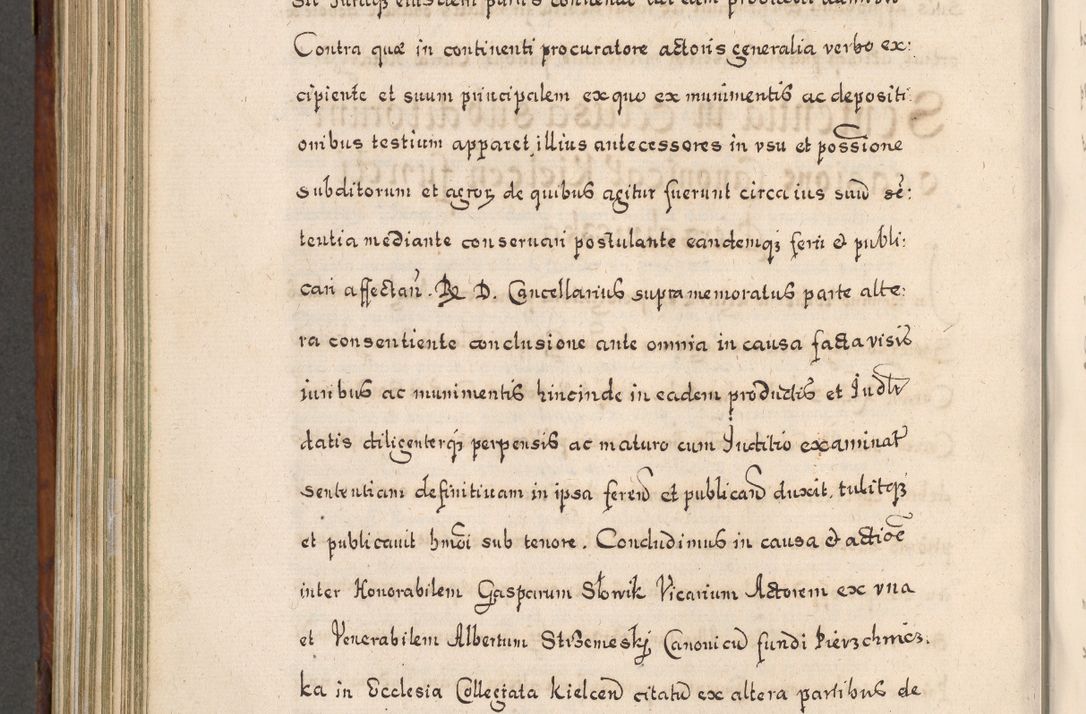 Contra quæ in continenti procuratore actoris generalia verbo ex:
cipiente et suum principalem ex quo ex munimentis ac depositi
onibus testium apparet, illius antecessores in vsu et possione
subditorum et agroꝝ de quibus agitur fuerunt circa ius suū sē:
tentia mediante conseruari postulante eandemqꝫ ferri & publi:
cari affectañ. R D. Cancellarius supra memoratus parte alte:
ra consentiente conclusione ante omnia in causa facta visis
iuribus ac munimentis hincinde in eadem productis et
datis diligenterqꝫ perpensis ac maturo cum Iuditio examinat
sententiam definitiuam in ipsa ferend et publicand duxit, tulitqꝫ
et publicauit hmoi sub tenore. Concludimus in causa & actioe
inter Honorabilem Gasparum Słowik Vicarium Actorem ex vna
et Venerabilem Albertum Strzemeskj Canonicū fundi Pierzchnicz.
ka in Ecclesia Collegiata Kielcen citatū ex altera partibus de